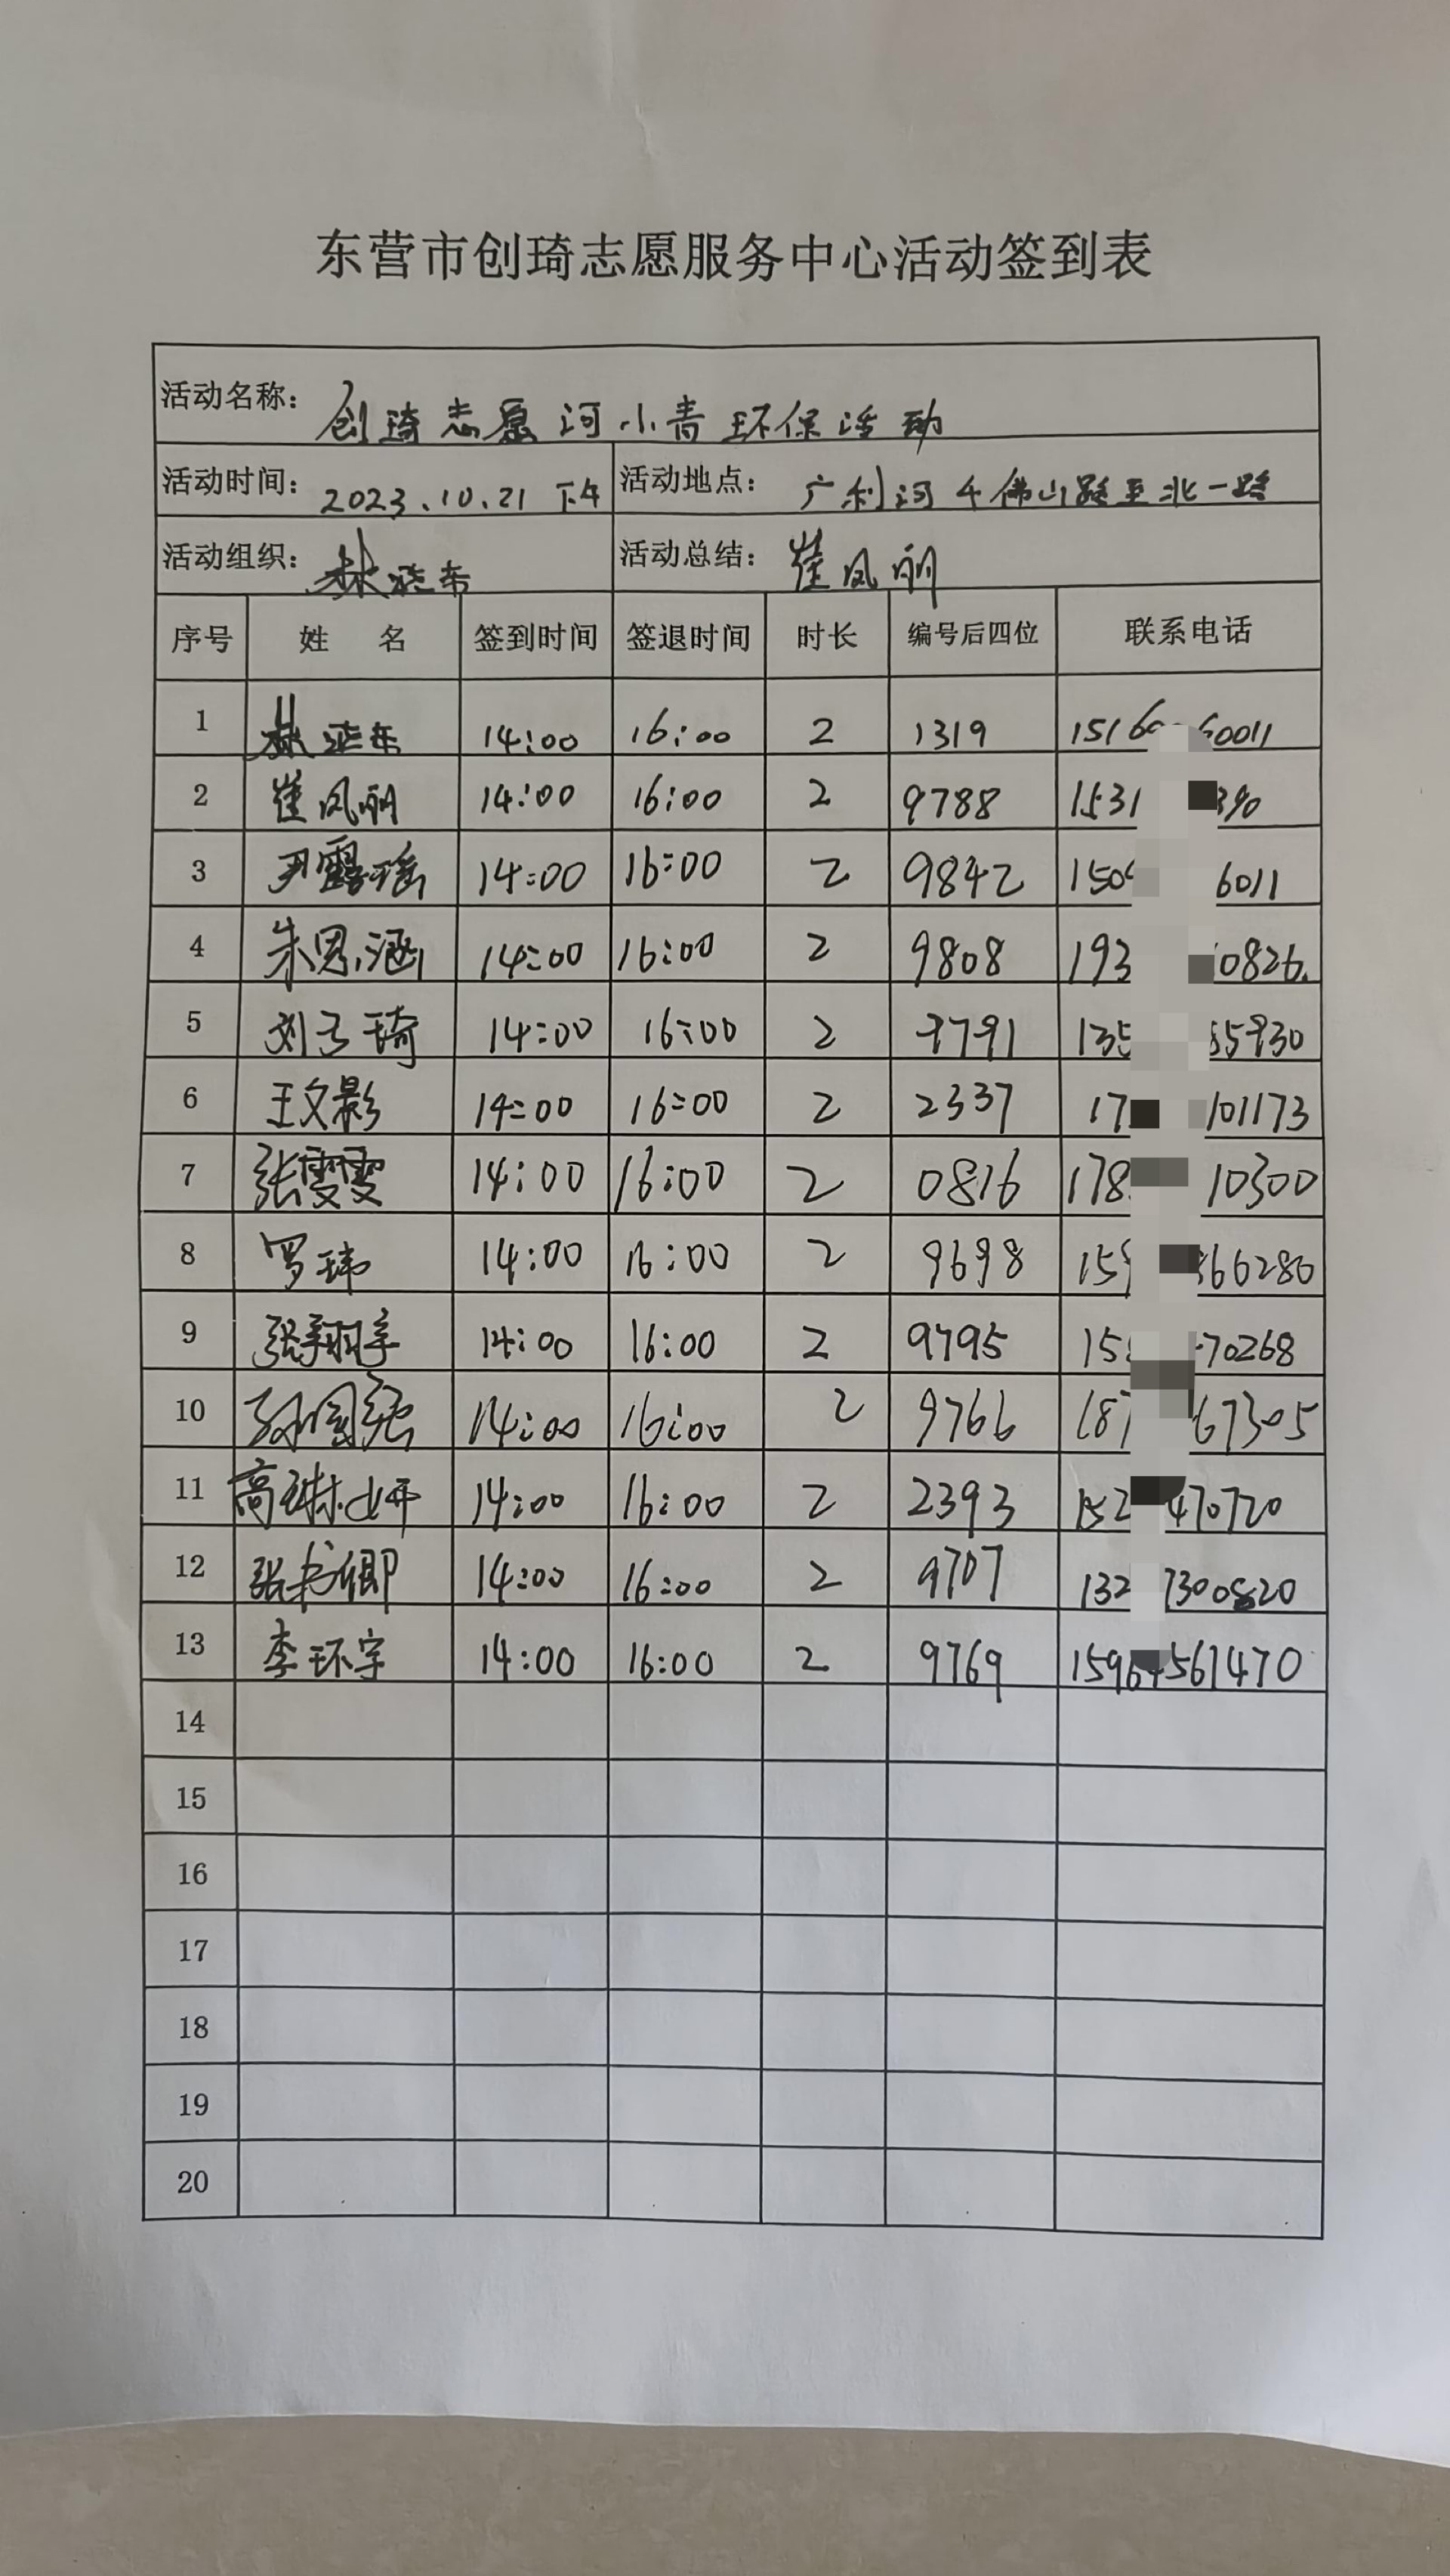 东营市创琦志愿服务中心活动签到表
活动名称： 创琦志愿河小青环保活动
活动时间： 2023.10.21 下午 活动地点： 广利河 佛山路至北一路
活动组织： 林 东 活动总结： 崔凤丽
序号 姓 名 签到时间 签退时间 时长 编号后四位 联系电话
1 林 东 14:00 16:00 2 1319 1516 60011
2 崔凤丽 14:00 16:00 2 9788 1531 390
3 尹露瑶 14:00 16:00 2 9842 150 6011
4 朱恩涵 14:00 16:00 2 9808 193 0826
5 刘子琦 14:00 16:00 2 9791 135 5930
6 王文影 14:00 16:00 2 2337 17 101173
7 张雯雯 14:00 16:00 2 0816 178 10300
8 罗玮 14:00 16:00 2 9698 15 66280
9 张翔宇 14:00 16:00 2 9795 15 70268
10 孙国强 14:00 16:00 2 9766 187 67305
11 高琳妍 14:00 16:00 2 2393 152 470720
12 张书卿 14:00 16:00 2 9707 132 7300820
13 李环宇 14:00 16:00 2 9769 159 561470
14
15
16
17
18
19
20